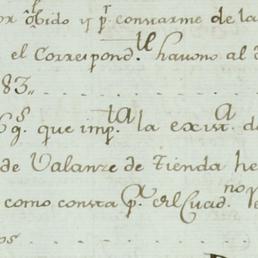 obido y pr. constarme de la
el Correspond.te havono al
83,,
6 gs. que imp.ta la exist.a d
de Valanze de Tienda he
como consta pr. el Cuad.no
os